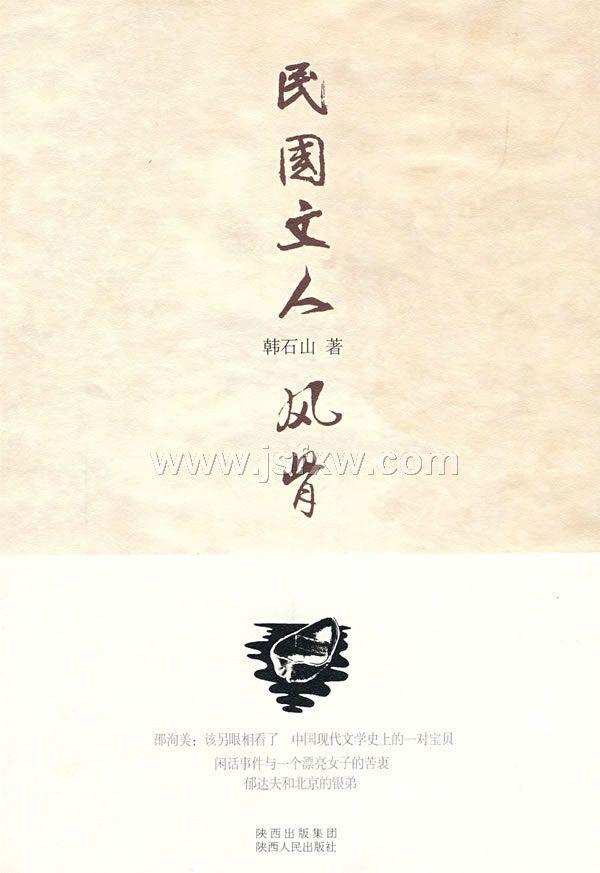 民國文人
韩石山 著
风骨
www.jsfxw.com
邵洵美：该另眼相看了 中国现代文学史上的一对宝贝
闲话事件与一个漂亮女子的苦衷
郁达夫和北京的银弟
陕西出版集团
陕西人民出版社